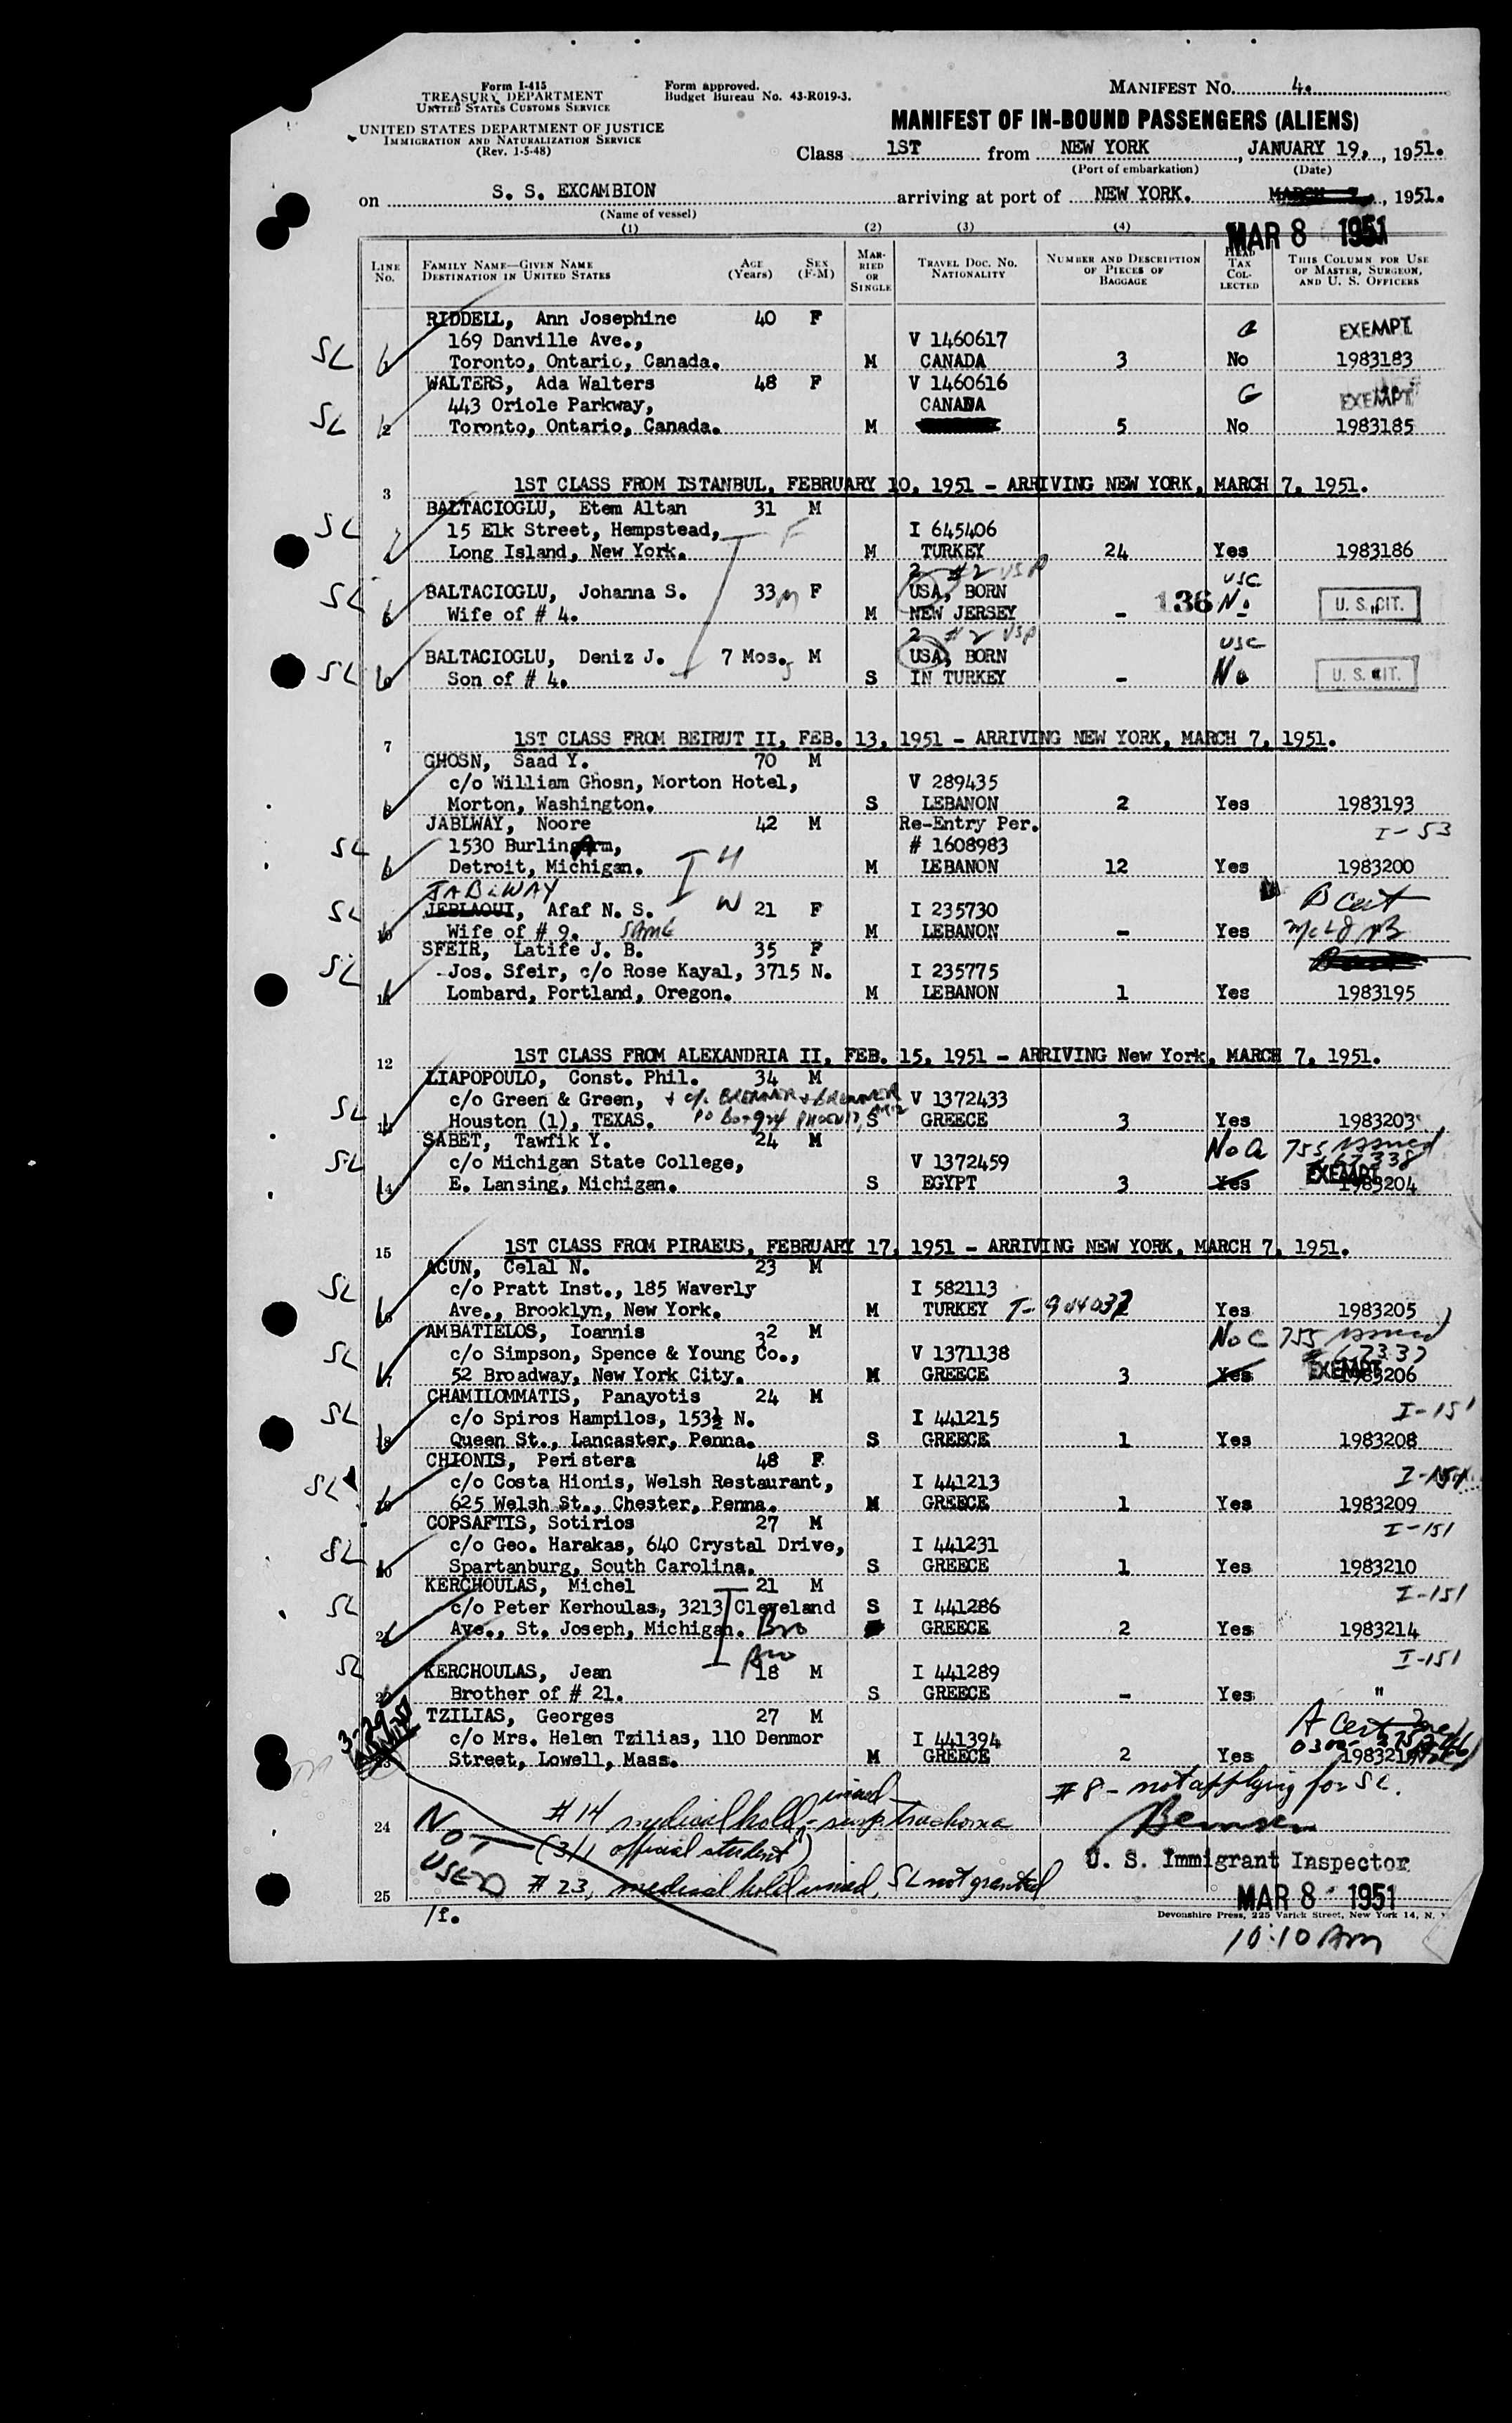 Form I-415
TREASURY DEPARTMENT
UNITED STATES CUSTOMS SERVICE
Form approved.
Budget Bureau No. 43-R019-3.
MANIFEST NO. 4.
UNITED STATES DEPARTMENT OF JUSTICE
IMMIGRATION AND NATURALIZATION SERVICE
(Rev. 1-5-48)
MANIFEST OF IN-BOUND PASSENGERS (ALIENS)
Class 1ST from NEW YORK, JANUARY 19, 1951.
(Port of embarkation) (Date)
on S. S. EXCAMBION arriving at port of NEW YORK. MARCH 7, 1951.
(Name of vessel)
MAR 8 1951
(1) (2) (3) (4)
LINE No. FAMILY NAME—GIVEN NAME DESTINATION IN UNITED STATES AGE (Years) SEX (F-M) MARRIED OR SINGLE TRAVEL DOC. NO. NATIONALITY NUMBER AND DESCRIPTION OF PIECES OF BAGGAGE HEAD TAX COLLECTED THIS COLUMN FOR USE OF MASTER, SURGEON, AND U. S. OFFICERS
RIDDELL, Ann Josephine 40 F EXEMPT
169 Danville Ave., V 1460617
SL 1 Toronto, Ontario, Canada. M CANADA 3 No 1983183
WALTERS, Ada Walters 48 F V 1460616 G EXEMPT
443 Oriole Parkway, CANADA
SL 2 Toronto, Ontario, Canada. M 5 No 1983185
3 1ST CLASS FROM ISTANBUL, FEBRUARY 10, 1951 - ARRIVING NEW YORK, MARCH 7, 1951.
BALTACIOGLU, Etem Altan 31 M
SL 15 Elk Street, Hempstead, F I 645406
4 Long Island, New York. M TURKEY 24 Yes 1983186
2 #2 USP
SL BALTACIOGLU, Johanna S. 33 M F USA, BORN 136 USC No U. S. CIT.
5 Wife of # 4. M NEW JERSEY -
2 #2 USP USC
SL BALTACIOGLU, Deniz J. 7 Mos. M USA, BORN No U. S. CIT.
6 Son of # 4. S IN TURKEY -
7 1ST CLASS FROM BEIRUT II, FEB. 13, 1951 - ARRIVING NEW YORK, MARCH 7, 1951.
GHOSN, Saad Y. 70 M
c/o William Ghosn, Morton Hotel, V 289435
8 Morton, Washington. S LEBANON 2 Yes 1983193
JABLWAY, Noore 42 M Re-Entry Per. I-53
SL 1530 Burlingam, # 1608983
9 Detroit, Michigan. H M LEBANON 12 Yes 1983200
JABLWAY
SL JEBLAOUI, Afaf N. S. W 21 F I 235730 B Cert
10 Wife of # 9. Same M LEBANON - Yes
SFEIR, Latife J. B. 35 F
SL Jos. Sfeir, c/o Rose Kayal, 3715 N. I 235775
11 Lombard, Portland, Oregon. M LEBANON 1 Yes 1983195
12 1ST CLASS FROM ALEXANDRIA II, FEB. 15, 1951 - ARRIVING New York, MARCH 7, 1951.
LIAPOPOULO, Const. Phil. 34 M
SL c/o Green & Green, + c/o BRENNER + BRENNER V 1372433
13 Houston (1), TEXAS. PO Box 924 PHOENIX, ARIZ S GREECE 3 Yes 1983203
SABET, Tawfik Y. 24 M No a 755 issued
SL c/o Michigan State College, V 1372459 EXEMPT
14 E. Lansing, Michigan. S EGYPT 3 Yes 1983204
15 1ST CLASS FROM PIRAEUS, FEBRUARY 17, 1951 - ARRIVING NEW YORK, MARCH 7, 1951.
ACUN, Celal N. 23 M
SL c/o Pratt Inst., 185 Waverly I 582113
16 Ave., Brooklyn, New York. M TURKEY 2 Yes 1983205
AMBATIELOS, Ioannis 32 M No C 755 issued
SL c/o Simpson, Spence & Young Co., V 1371138 EXEMPT
17 52 Broadway, New York City. M GREECE 3 Yes 1983206
CHAMILOMMATIS, Panayotis 24 M I-151
SL c/o Spiros Hampilos, 153½ N. I 441215
18 Queen St., Lancaster, Penna. S GREECE 1 Yes 1983208
CHIONIS, Peristera 48 F I-151
SL c/o Costa Hionis, Welsh Restaurant, I 441213
19 625 Welsh St., Chester, Penna. M GREECE 1 Yes 1983209
COPSAFTIS, Sotirios 27 M I-151
SL c/o Geo. Harakas, 640 Crystal Drive, I 441231
20 Spartanburg, South Carolina. S GREECE 1 Yes 1983210
KERCHOULAS, Michel 21 M I-151
SL c/o Peter Kerhoulas, 3213 Cleveland S I 441286
21 Ave., St. Joseph, Michigan. Bro GREECE 2 Yes 1983214
Bro I-151
SL KERCHOULAS, Jean 18 M I 441289
22 Brother of # 21. S GREECE - Yes "
TZILIAS, Georges 27 M A Cert
3-29-51 c/o Mrs. Helen Tzilias, 110 Denmor I 441394
ADMIT 23 Street, Lowell, Mass. M GREECE 2 Yes
#8 - not applying for SL.
24 NOT USED #14 medical hold, - susp trachoma
(3/1 official student)
U. S. Immigrant Inspector
25 #23, medical hold, SL not granted
MAR 8 1951
1f. Devonshire Press, 225 Varick Street, New York 14, N. Y.
10:10 Am